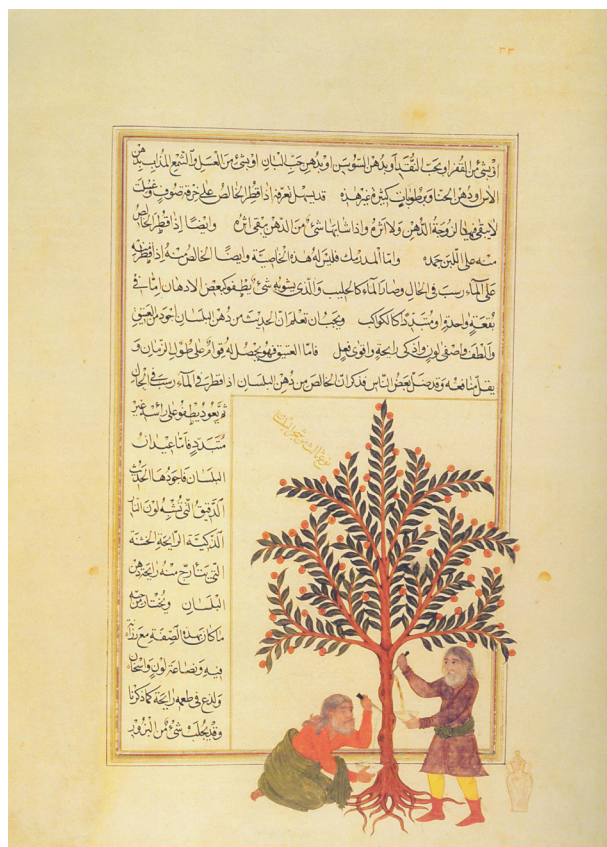 ٣٣
او بشئ من القفر او بحب النقد او بدهن السوسن او بدهن حب البان او بشئ من العسل والشمع المذاب بدهن
الآس ودهن الحنا وبرطوبات كثيرة غير هذه قد يسهل معرفة اذا قطر الخالص على خرقة صوف وغسلت
لا يبقى فيها لزوجة الدهن ولا اثره واذا شابها شئ من الدهن بقى اثره وايضا اذا قطر الخالص
منه على اللبن جمده واما المدلس فليس له هذه الخاصية وايضا الخالص منه اذا قطر به
على الماء رسب في الحال وصار الماء كالحليب والذى يشوبه شئ يطفو كبعض الادهان اما في
بقعة واحدة او متبددا كالكواكب ويجب ان تعلم ان الحديث من دهن البلسان اجود من العتيق
والطف واصفى لون واذكى رايحة واقوى فعل فاما العتيق فهو يحصل له قوام على طول الزمان و
يقل منافعه وقد ضل بعض الناس فذكر ان الخالص من دهن البلسان اذا قطر في الماء رسب في الحال
ثم يعود يطفو على رأسه غير
متبدد فاما عيدان
البلسان فاجودها الحدث
الدقيق التى تشبه لون النار
الذكية الرايحة الخشنة
التى منه رايحة دهن
البلسان ويختار من حبه
ما كان بهذه الصفة مع رزانة
فيه ونصاعة لون واسخان
ولدع فى طعمه رايحة كما ذكرنا
وقد يجلب شئ من البزور